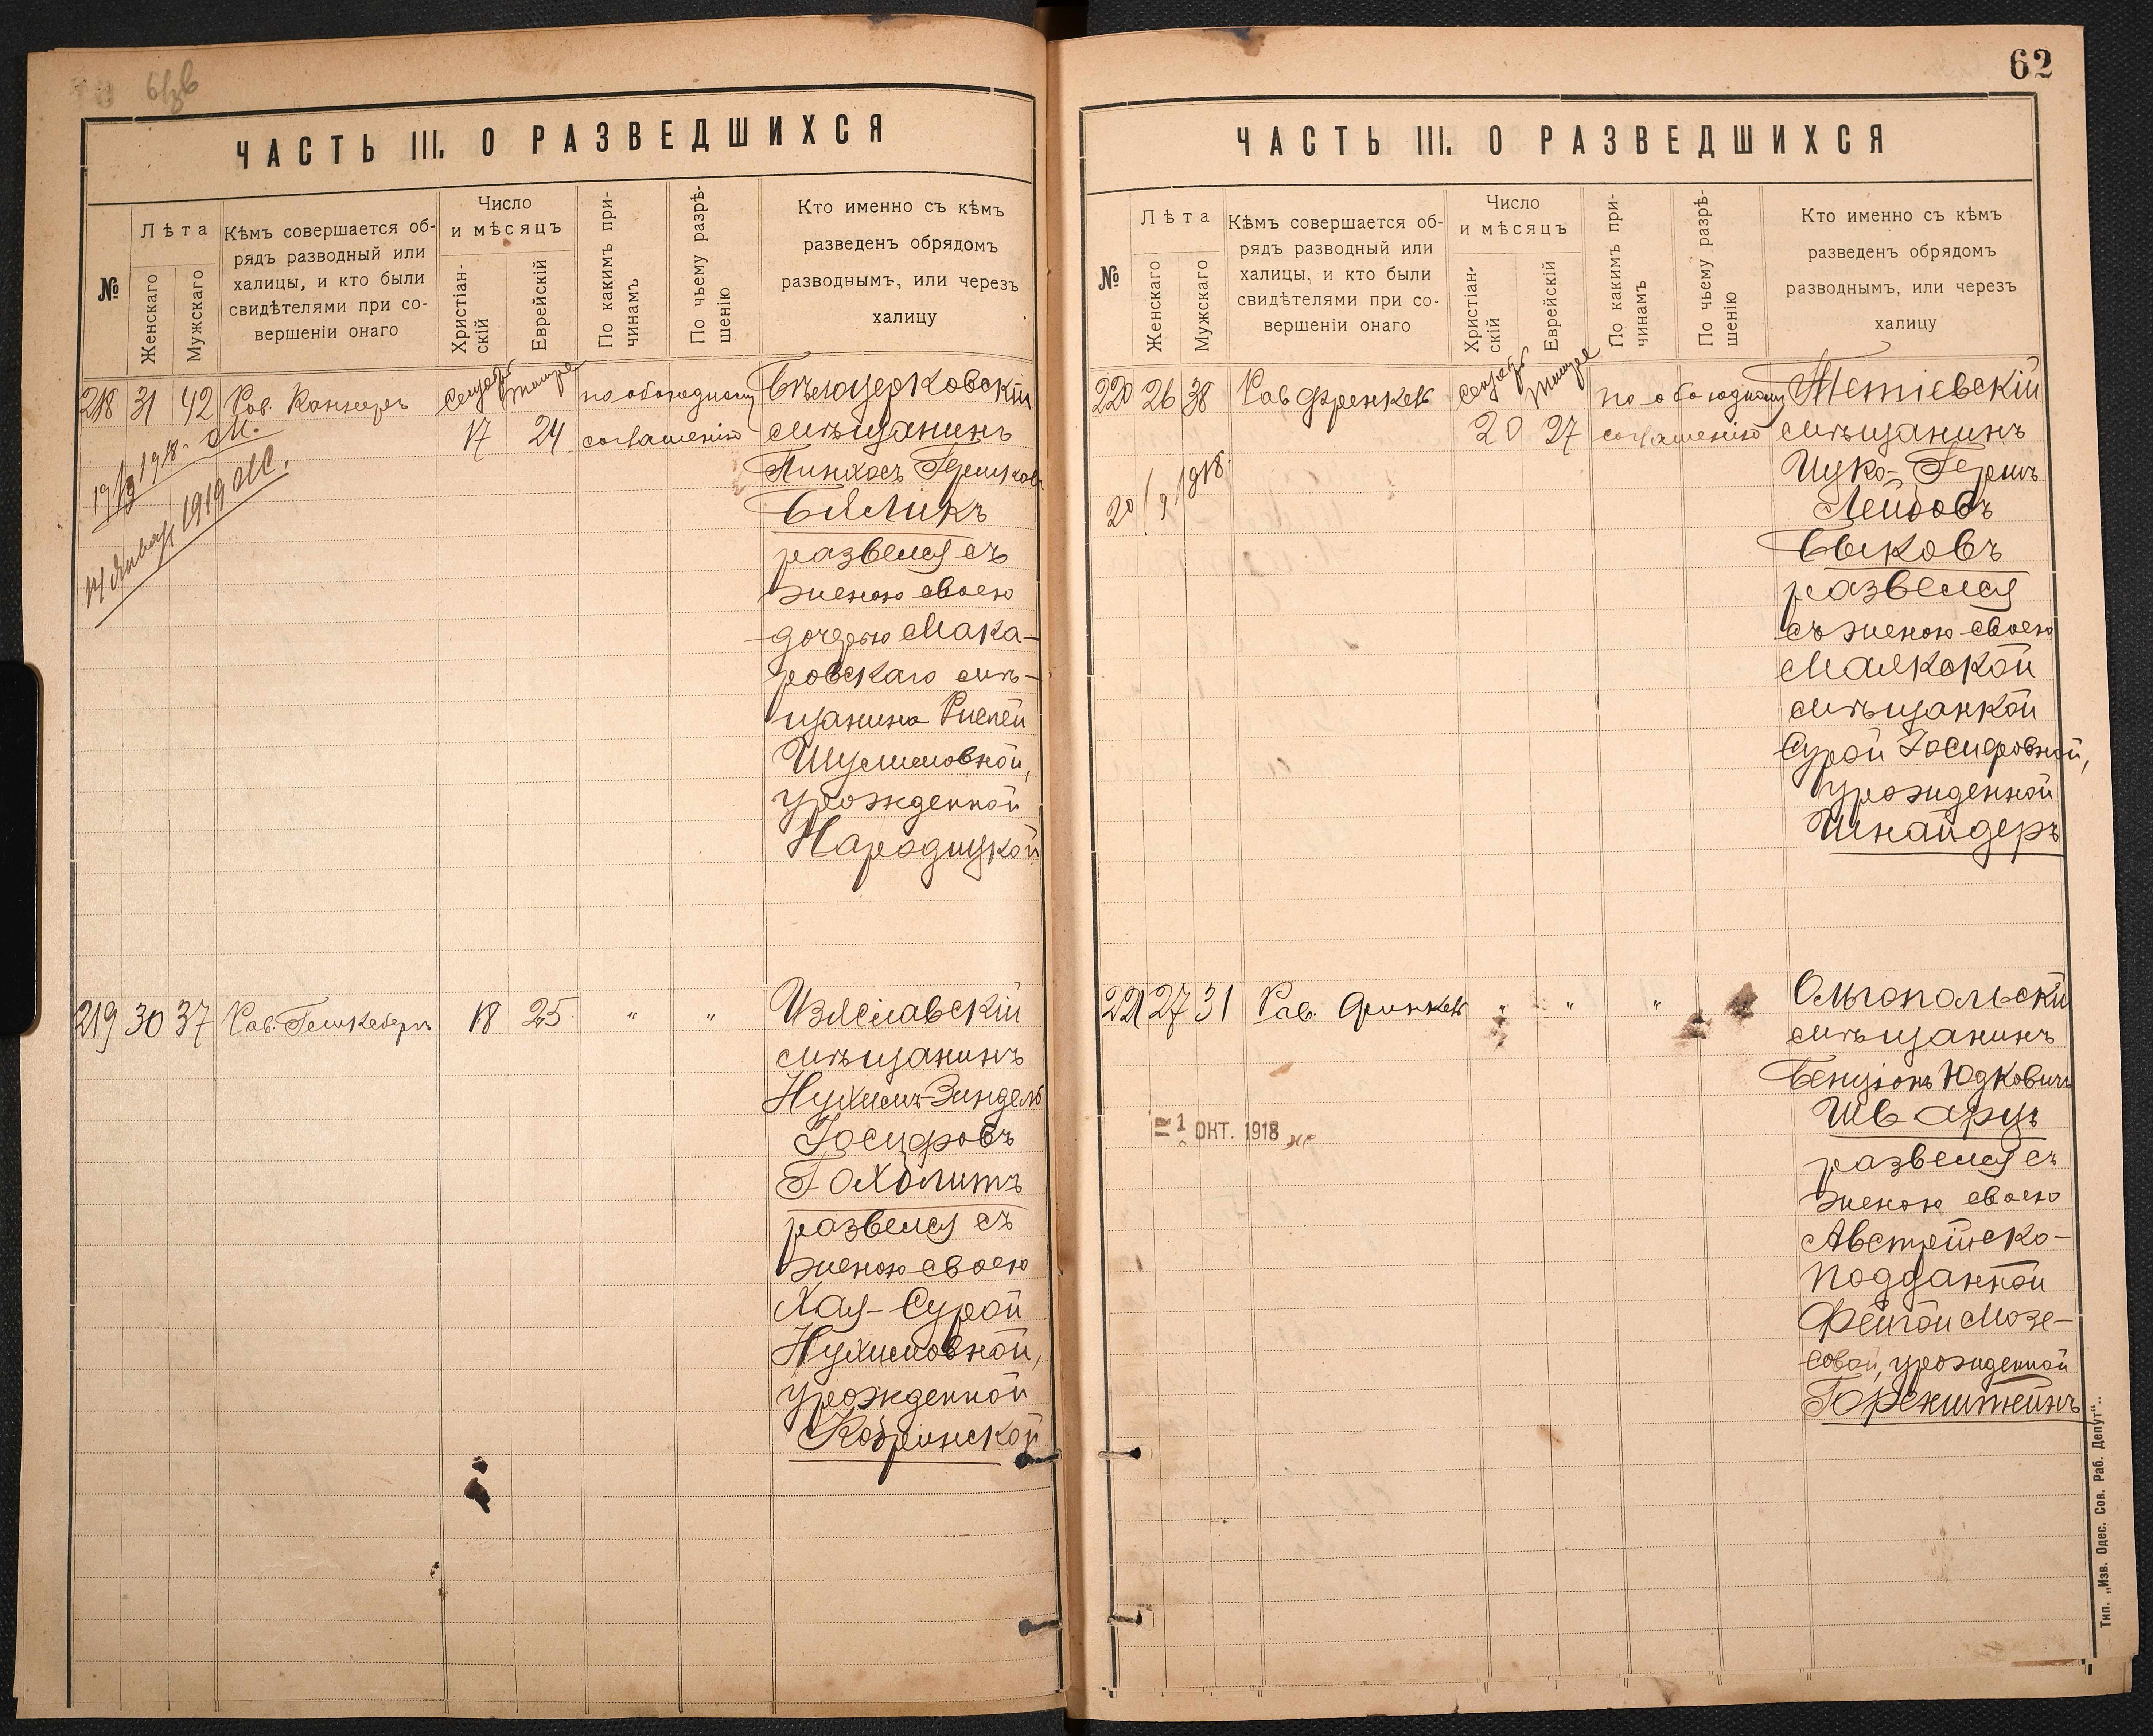 ЧАСТЬ III. О РАЗВЕДШИХСЯ
№
Лѣта
Женскаго
Мужскаго
Кѣмъ совершается об-
рядъ разводный или
халицы, и кто были
свидѣтелями при со-
вершеніи онаго
Число
и мѣсяцъ
Христіан-
скій
Еврейскій
По какимъ при-
чинамъ
По чьему разрѣ-
шенію
Кто именно съ кѣмъ
разведенъ обрядомъ
разводнымъ, или черезъ
халицу
218 31 42 Рав. по обоюдному Бѣлоцерковскій
17 24 соглашенію мѣщанинъ
Пинхосъ Гершковъ
Бяликъ
развелся съ
женою своею
дочерью Мака-
ровскаго мѣ-
щанина
Шулимовной,
урожденной
Народицкой
19/9 1918.
14 Января 1919
219 30 37 Рав. 18 25 " " Изяславскій
мѣщанинъ
Нухимъ-Зиндель
Іосифовъ
развелся съ
женою своею
Хая-Сурой
Нухимовной,
урожденной
Кобринской
62
ЧАСТЬ III. О РАЗВЕДШИХСЯ
№
Лѣта
Женскаго
Мужскаго
Кѣмъ совершается об-
рядъ разводный или
халицы, и кто были
свидѣтелями при со-
вершеніи онаго
Число
и мѣсяцъ
Христіан-
скій
Еврейскій
По какимъ при-
чинамъ
По чьему разрѣ-
шенію
Кто именно съ кѣмъ
разведенъ обрядомъ
разводнымъ, или черезъ
халицу
220 26 38 Рав Френкель по обоюдному Тетіевскій
20 27 соглашенію мѣщанинъ
Ицко-Гершъ
Лейбовъ
Быковъ
развелся
съ женою своею
Маякской
мѣщанкой
Сурой Іосифовной,
урожденной
Шнайдеръ
20/9/1918.
221 27 31 Рав. " " " Ольгопольскій
мѣщанинъ
Бенціонъ Юдковичъ
Шварцъ
развелся съ
женою своею
Австрійско-
подданной
Фейгой Мозе-
совой, урожденной
Горенштейнъ
1 ОКТ. 1918
Тип. „Изв. Одес. Сов. Раб. Депут“.